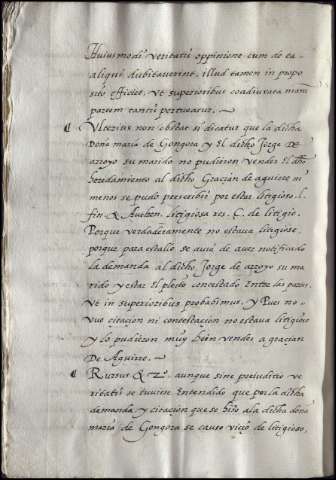 Huiusmodi veritatis oppinione cum de ea
aliqui dubitauerint, illud tamen in propo
sito efficiet, ut superioribus coadiuuata mom
partem
¶ Vlterius non obstat si dicatur que la dicha
Doña maria de Gongora y El dicho Jorge de
arroyo su marido no pudieron vender El dho
heredamiento al dicho Graçian de aguirre ni
menos se pudo prescribir por estar litigioso. l.
fin. & Authen. litigiosa res. C. de litigio.
Porque verdaderamente no estaua litigioso,
porque para estallo se auia de auer notificado
la demanda al dicho Jorge de arroyo su ma
rido y estar El pleito contestado Entre las partes,
Vt in superioribus probabimus, y Pues no
vuo citacion ni contestacion no estaua litigioso
y lo pudieron muy bien vender a graçian
De Aguirre.
¶ Rursus & 2º, aunque sine preiudicio ve
ritatis se tuuiese Entendido que por la dicha
demanda y citacion que se hizo a la dicha doña
maria de Gongora se causo vicio de litigioso,